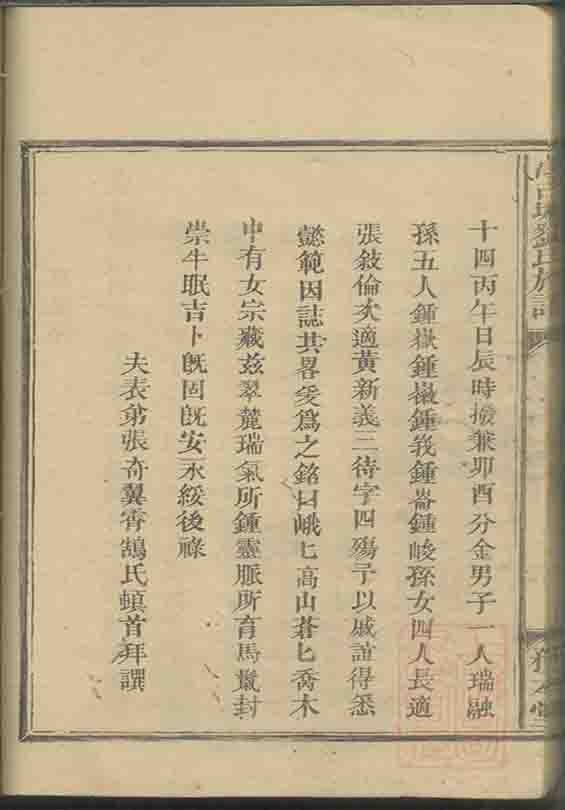 十四丙午日辰時扱兼卯酉分金男子一人瑞融
孫五人鍾嶽鍾嶔鍾峩鍾崙鍾峻孫女四人長適
張敍倫次適黃新義三待字四殤予以戚誼得悉
懿範因誌其畧爰爲之銘曰峨匕高山蒼匕喬木
中有女宗藏兹翠麓瑞氣所鍾靈脈所育馬鬛封
崇牛眠吉卜旣固旣安永綏後祿
夫表弟張奇翼霄鵠氏頓首拜譔